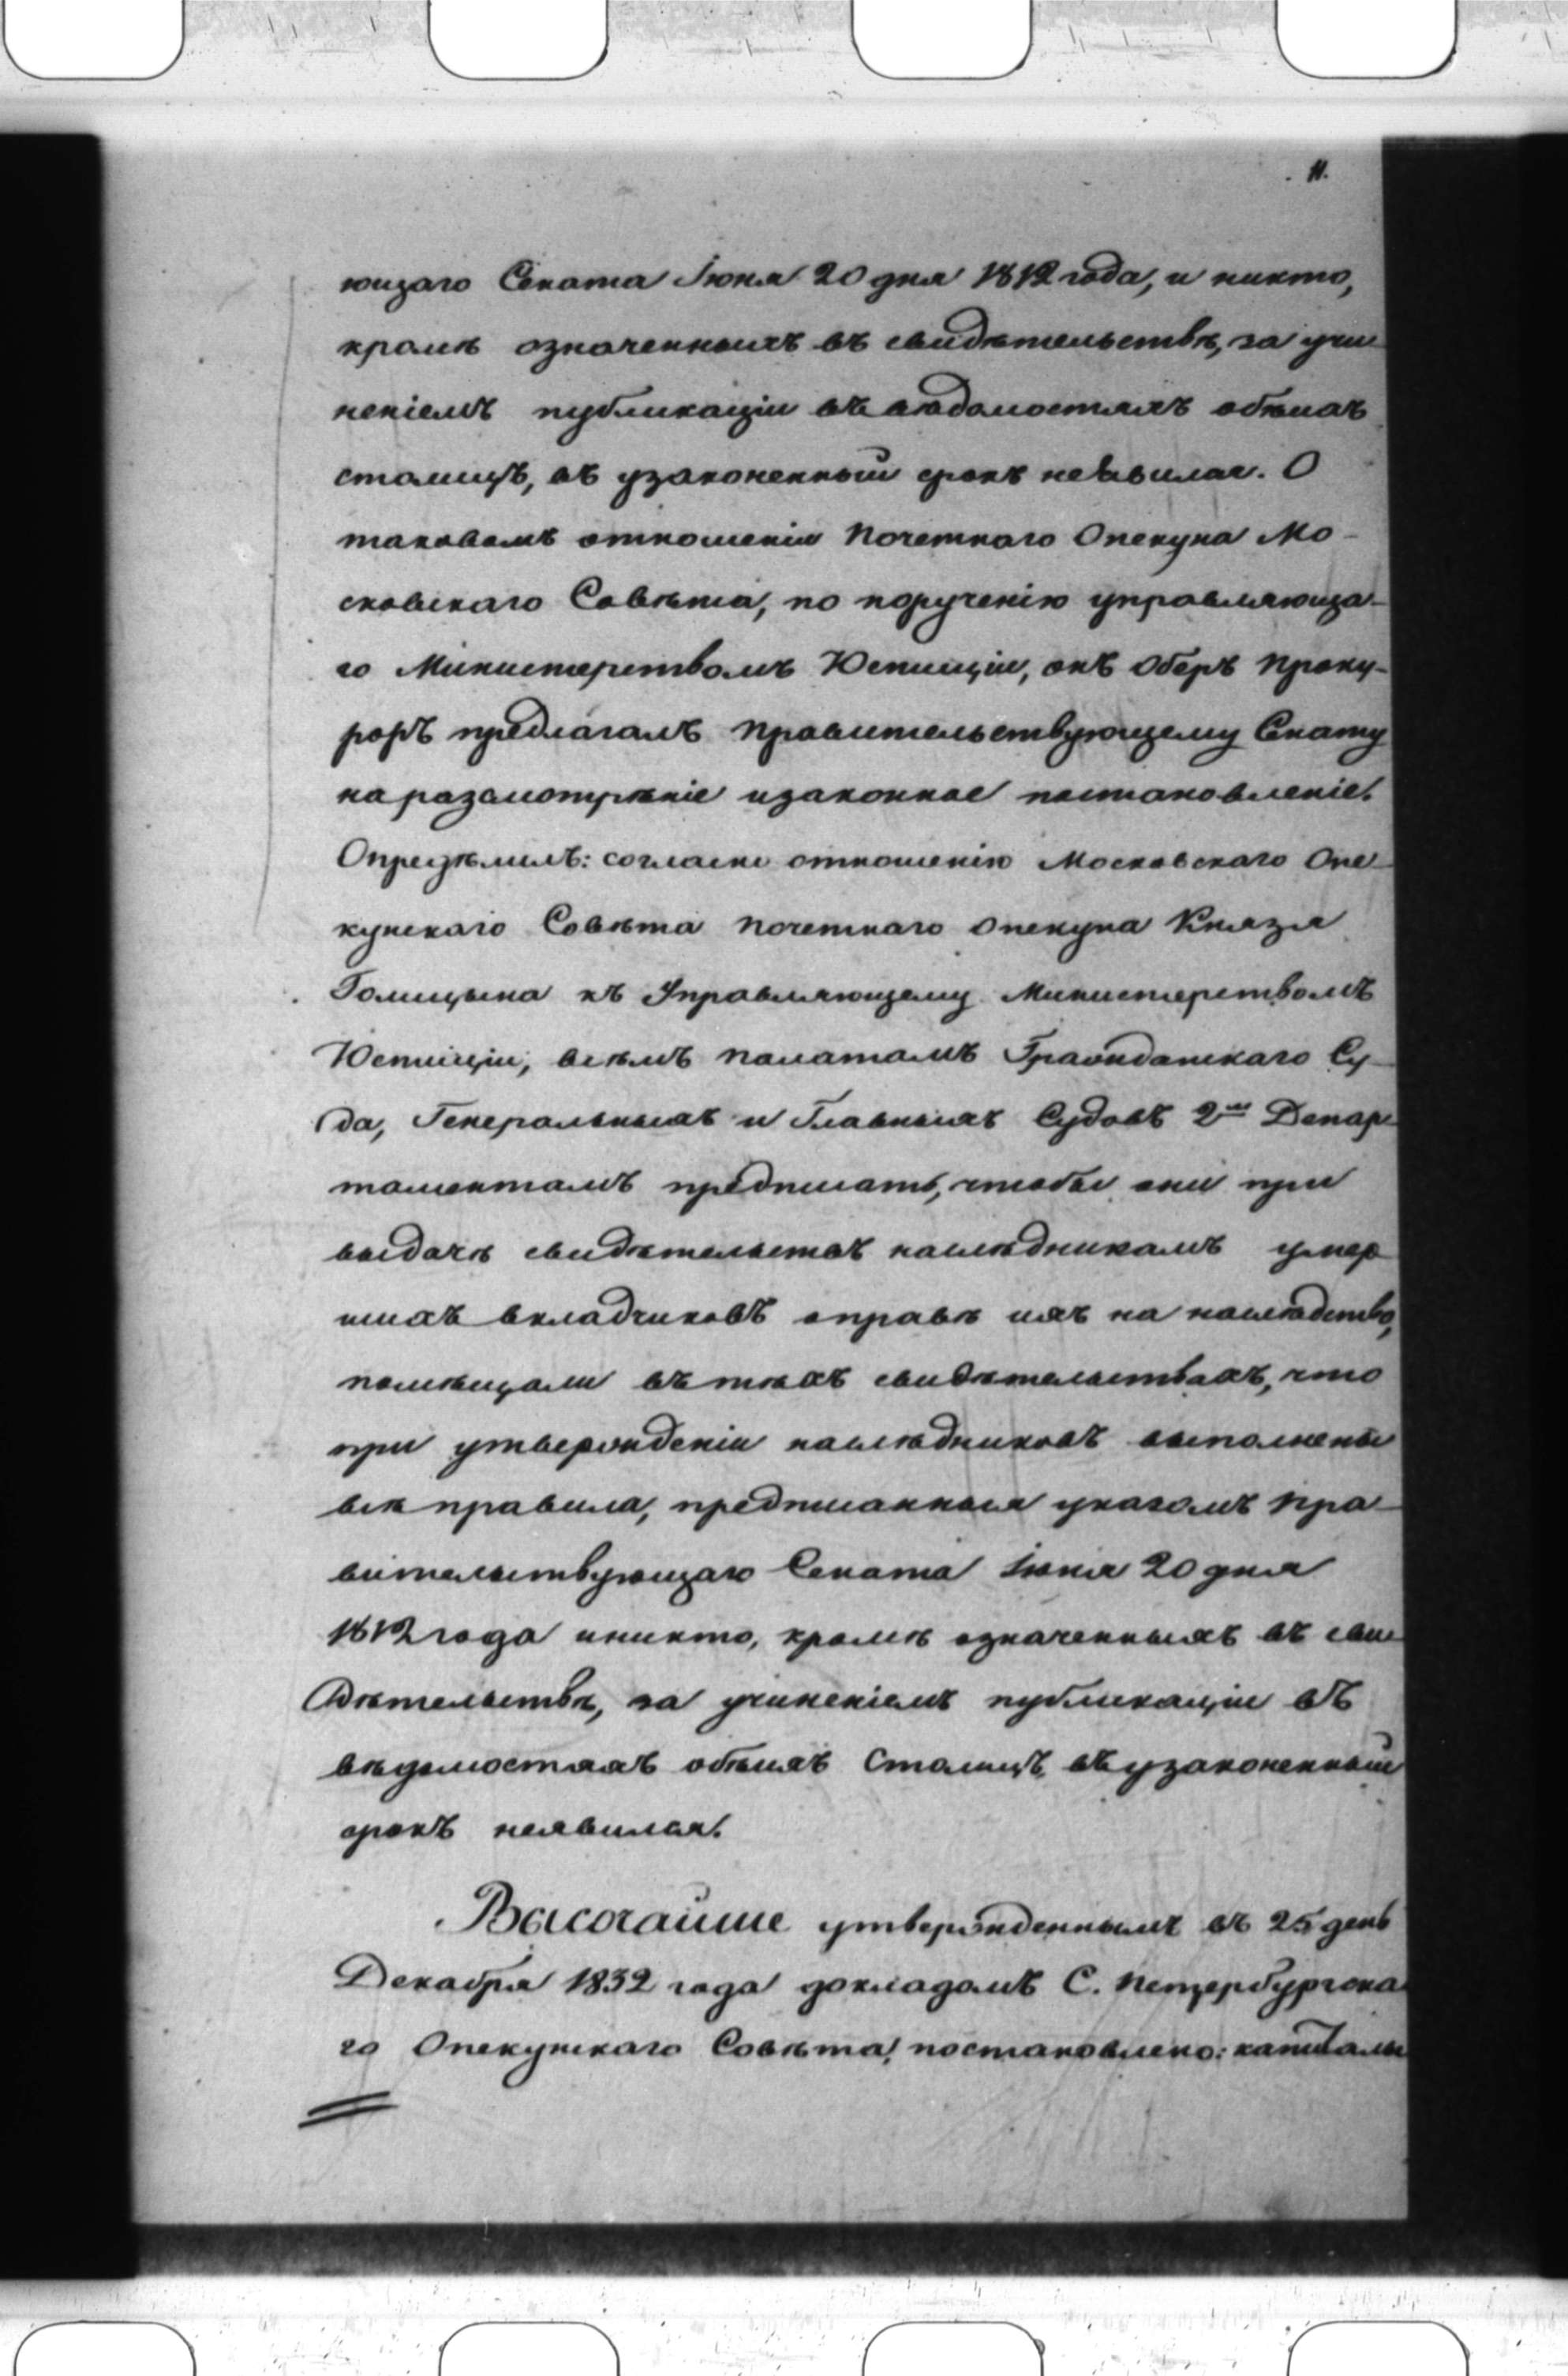 11.
ющаго Сената Іюня 20 дня 1812 года, и никто,
кромѣ означенныхъ въ свидѣтельствѣ, за учи
неніемъ публикаціи въ вѣдомостяхъ обѣихъ
столицъ, въ узаконенный срокъ неявился. О
таковомъ отношеніи Почетнаго Опекуна Мо-
сковскаго Совѣта, по порученію управляюща-
го Министерствомъ Юстиціи, онъ Оберъ Проку-
роръ предлагалъ Правительствующему Сенату
на разсмотрѣніе и законное постановленіе.
Опредѣлилъ: согласно отношенію Московскаго Опе-
кунскаго Совѣта Почетнаго Опекуна Князя
Голицына къ Управляющему Министерствомъ
Юстиціи, всѣмъ Палатамъ Гражданскаго Су-
да, Генеральныхъ и Главныхъ Судовъ 2мъ Депар-
таментамъ предписать, чтобы они при
выдачѣ свидѣтельствъ наслѣдникамъ умер
шихъ вкладчиковъ о правѣ ихъ на наслѣдство,
помѣщали въ тѣхъ свидѣтельствахъ, что
при утвержденіи наслѣдниковъ выполнены
всѣ правила, предписанныя указомъ Пра-
вительствующаго Сената Іюня 20 дня
1812 года и никто, кромѣ означенныхъ въ сви
дѣтельствѣ, за учиненіемъ публикаціи въ
вѣдомостяхъ обѣихъ Столицъ, въ узаконенный
срокъ неявился.
Высочайше утвержденнымъ въ 25 день
Декабря 1832 года докладомъ С. Петербургска
го Опекунскаго Совѣта, постановлено: капиталы